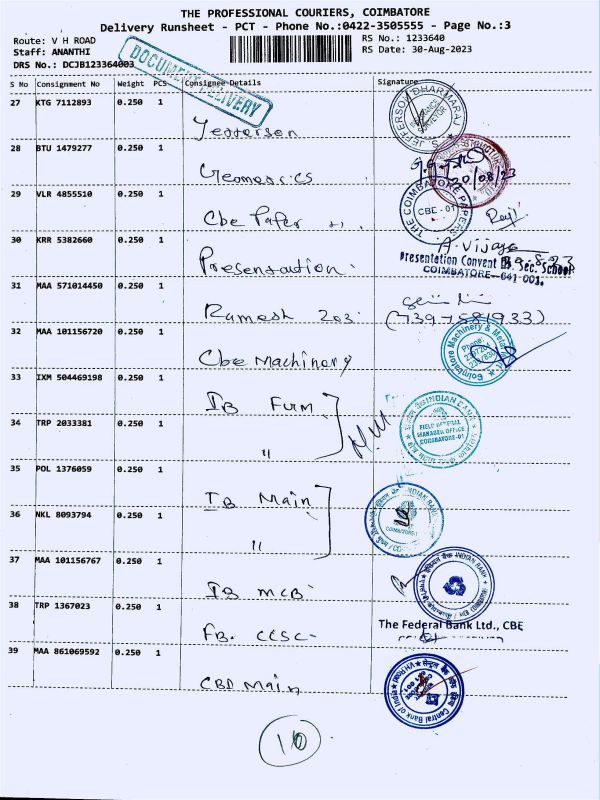 THE PROFESSIONAL COURIERS, COIMBATORE
Delivery Runsheet - PCT - Phone No.:0422-3505555 - Page No.:3
Route: V H ROAD
RS No.: 1233640
Staff: ANANTHI
RS Date: 30-Aug-2023
DRS No.: DCJB123364003
DOCUMENT DELIVERY
S No Consignment No Weight PCS Consignee Details Signature
27 KTG 7112893 0.250 1
S. JEFFERSON DHARMARAJ
SURVEYOR
28 BTU 1479277 0.250 1
Geomatrics
29 VLR 4855510 0.250 1
Cbe Paper
THE COIMBATORE PAPERS
CBE - 01
30 KRR 5382660 0.250 1
Presentation
A. Vijaya
Presentation Convent
Sec. School
COIMBATORE-641 001.
31 MAA 571014450 0.250 1
Ramesh 203
(7397581933)
32 MAA 101156720 0.250 1
Cbe Machinery
Coimbatore Machinery &
Phone:
33 IXM 504469198 0.250 1
IB Fum
INDIAN BANK
34 TRP 2033381 0.250 1
"
FIELD GENERAL
MANAGER OFFICE
COIMBATORE-01
35 POL 1376059 0.250 1
IB Main
INDIAN BANK
36 NKL 8093794 0.250 1
"
COIMBATORE-1
37 MAA 101156767 0.250 1
IB MCB
INDIAN BANK
38 TRP 1367023 0.250 1
FB. CCSC
The Federal Bank Ltd., CBE
39 MAA 861069592 0.250 1
CBD Main
Central Bank of India